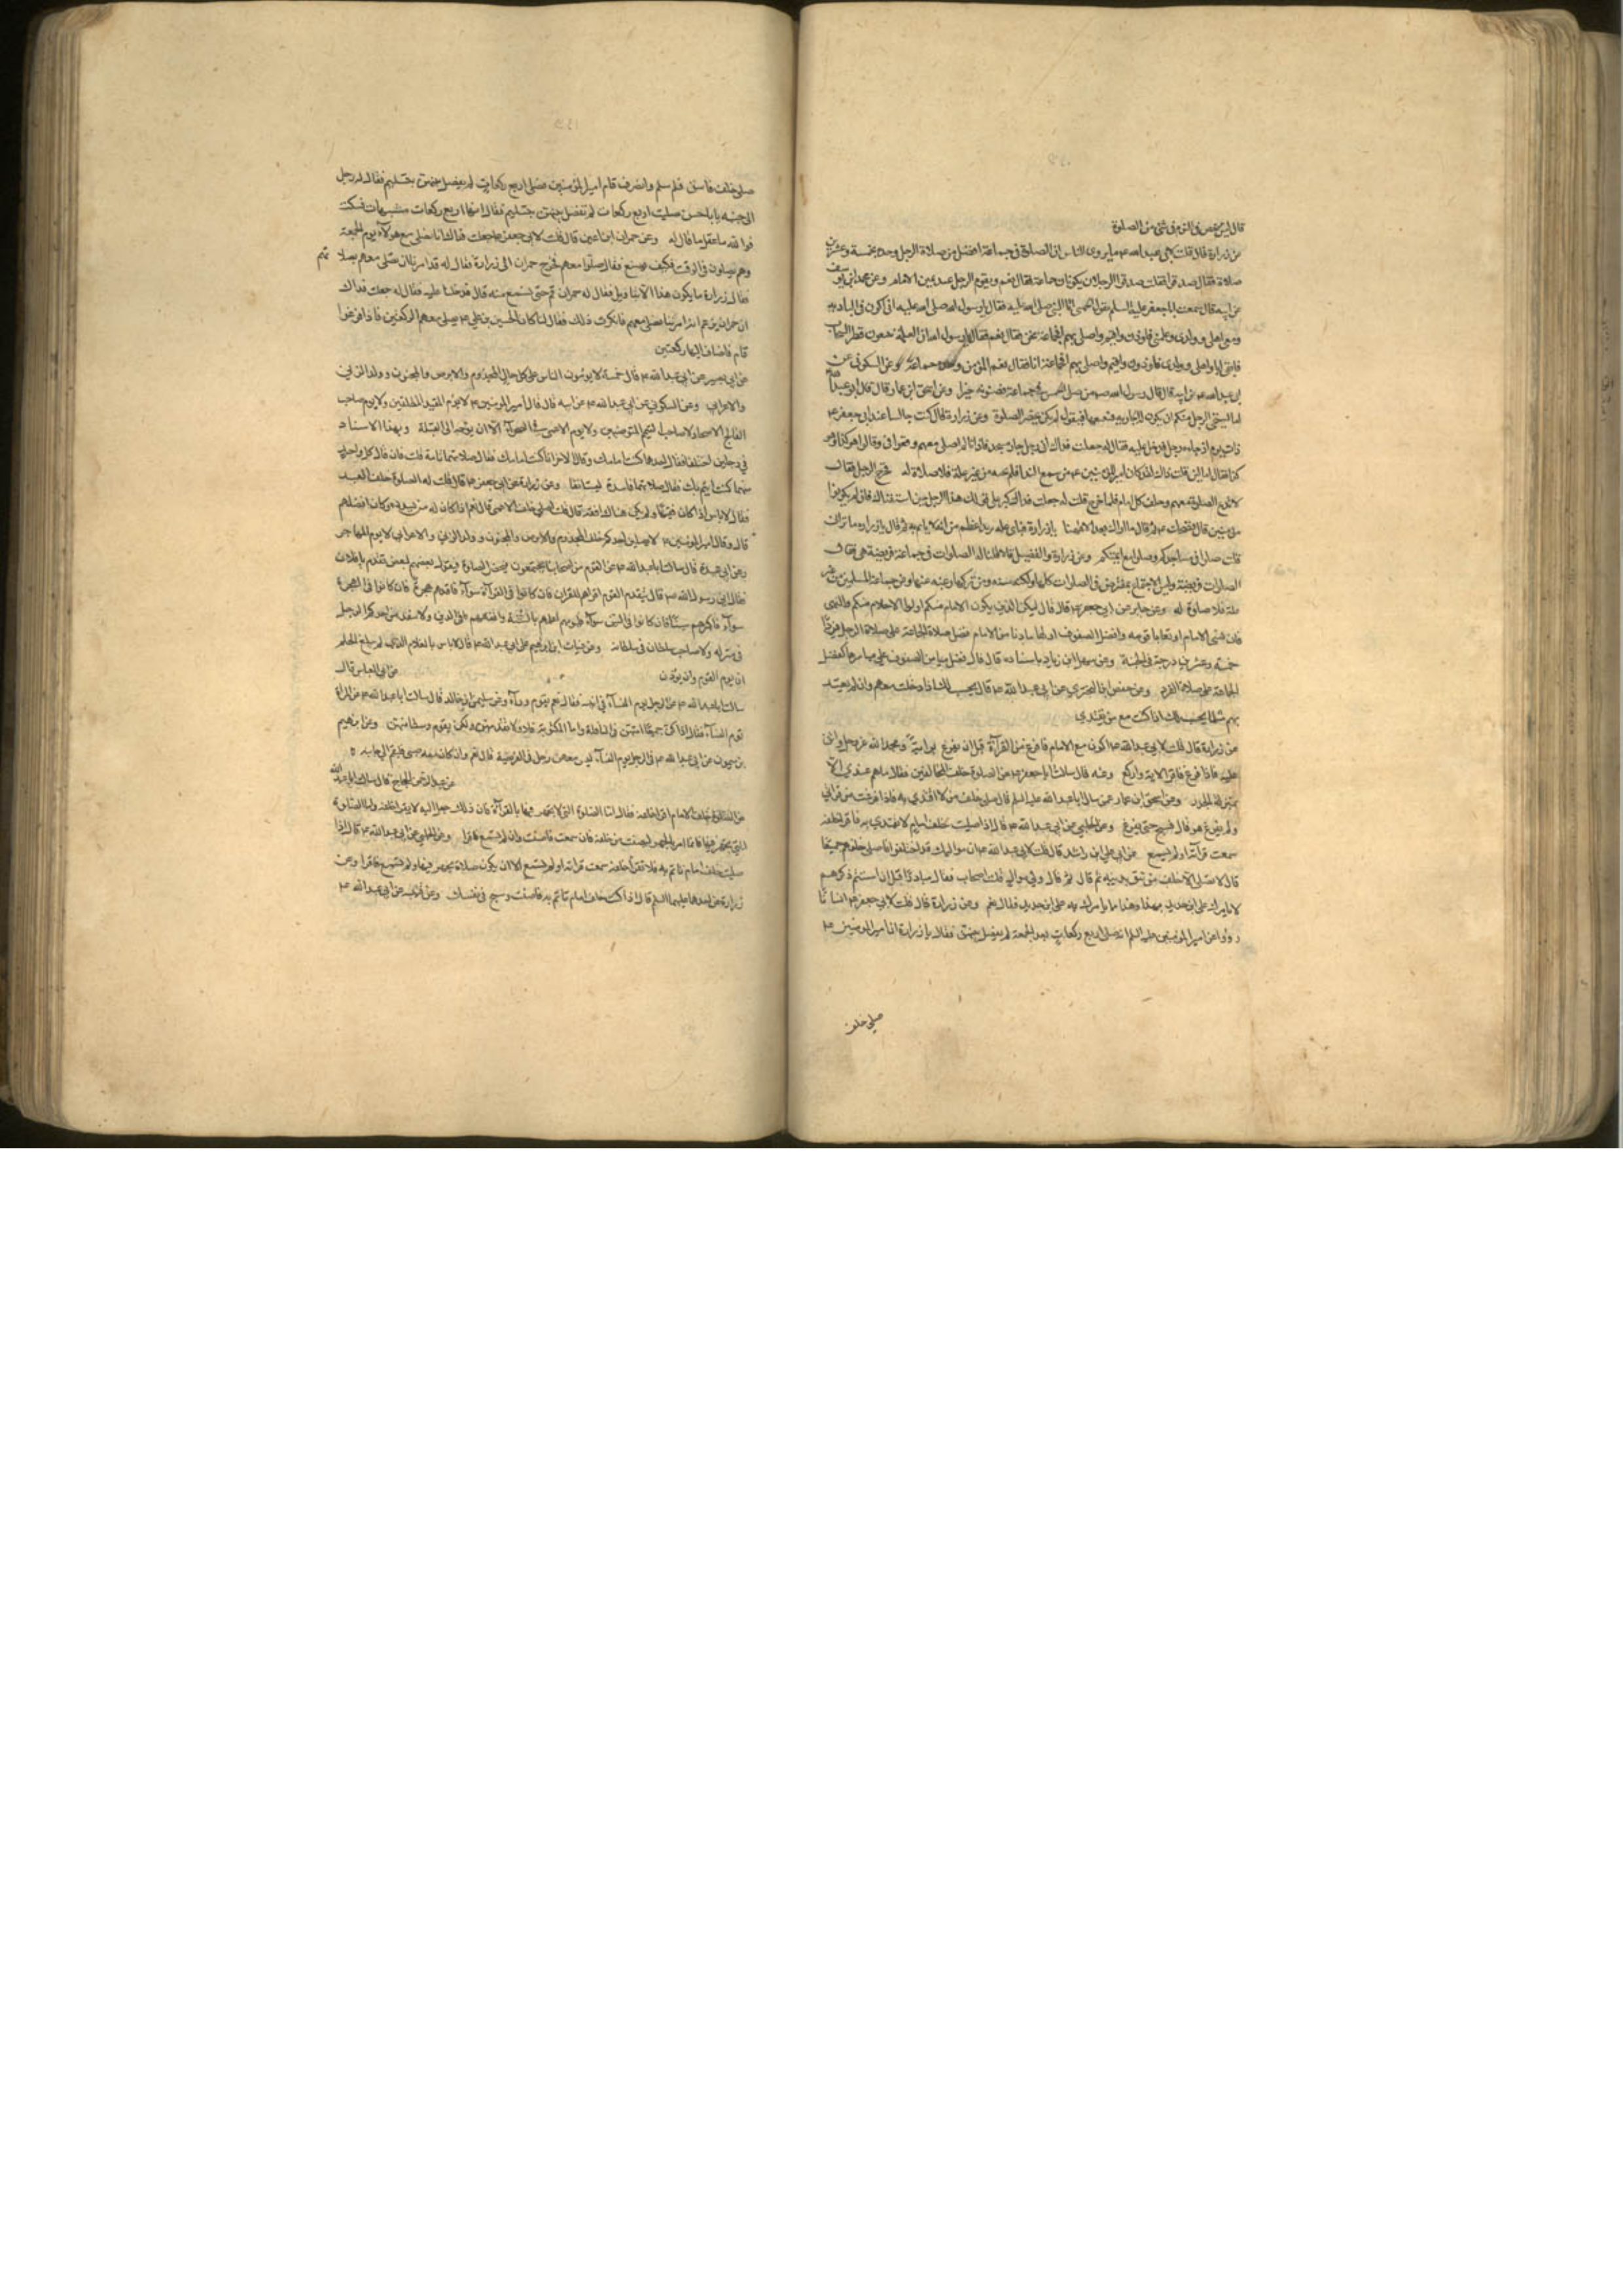 قال ليس يرخص في النوم في شئ من الصلوة
عن زرارة قال قلت لابي عبد الله ع ما يروى الناس ان الصلوة في جماعة افضل من صلاة الرجل وحده بخمسة وعشرين
صلاة فقال صدقوا فقلت صدقوا الرجلان يكونان جماعة فقال نعم ويقوم الرجل عن يمين الامام وعن محمد ابن يوسف
عن ابيه قال سمعت ابا جعفر عليه السلم يقول ان الجهني اتى النبي صلى الله عليه فقال يا رسول الله صلى الله عليه انى اكون في البادية
ومعى اهلى وولدى وغلمتى فاوذن واقيم واصلى بهم افجماعة نحن فقال نعم فقال يا رسول الله ان الغلمة يتبعون قطر السحاب
فابقى انا واهلى وولدى فاوذن واقيم واصلى بهم افجماعة انا فقال نعم المؤمن وحده جماعة وعن السكونى عن
ابى عبد الله ع عن ابيه قال قال رسول الله ص من صلى الخمس في جماعة فظنوا به خيرا وعن اسحق ابن عمار قال قال ابو عبد الله
اما يستحي الرجل منكم ان يكون له الجارية فيبيعها فيقول لم يكن يحضر الصلوة وعن زرارة قال كنت جالسا عند ابى جعفر ع
ذات يوم اذ جاءه رجل فدخل عليه فقال له جعلت فداك انى رجل جار مسجد فاذا انا لم اصل معهم وقعوا فى وقالوا هو كذا وكذا
فقال اما لئن قلت ذاك لقد كان امير المؤمنين ع من سمع الندا فلم يجبه من غير علة فلا صلاة له فخرج الرجل فقال
لا تدع الصلوة معهم وخلف كل امام فلما خرج قلت له جعلت فداك كبر على قولك لهذا الرجل حين استفتاك فان لم يكونوا
مؤمنين قال فضحك ع ثم قال ما اراك بعد الا ههنا يا زرارة فاى علة تريد اعظم من انه لا يأتم به ثم قال يا زرارة ما ترانى
قلت صلوا في مساجدكم وصلوا مع ائمتكم وعن زرارة والفضيل قالا قلنا له الصلوات في جماعة فريضة هى فقال
الصلوات فريضة وليس الاجتماع بمفترض في الصلوات كلها ولكنه سنه ومن تركها رغبة عنها وعن جماعة المسلمين من غير
علة فلا صلوة له وعن جابر عن ابى جعفر ع قال قال ليكن الذين يكون الامام منكم اولوا الاحلام منكم والنهى
فان نسى الامام او تعايا قوموه وافضل الصفوف اولها ما دنا من الامام فضل صلاة الجماعة على صلاة الرجل فردا
خمسة وعشرين درجة في الجنة وعن سهل ابن زياد باسناده قال قال فضل ميامن الصفوف على مياسرها كفضل
الجماعة على صلاة الفرد وعن حفص ابن البخترى عن ابى عبد الله ع قال يحسب لك اذا دخلت معهم وان لم يعتد
بهم مثل ما يحسب لك اذا كنت مع من يقتدى
عن زرارة قال قلت لابى عبد الله ع اكون مع الامام فافرغ من القرآة قبل ان يفرغ قال ابق آية ومجد الله عز وجل واثن
عليه فاذا فرغ فاقرا الاية واركع وعنه قال سالت ابا جعفر ع عن الصلوة خلف المخالفين فقال ما هم عندى الا
بمنزلة الجدر وعن اسحق ابن عمار عمن سال ابا عبد الله عليه السلم قال صلى خلف من لا اقتدى به فاذا فرغت من قرائي
ولم يفرغ هو قال فسبح حتى يفرغ وعن الحلبي عن ابى عبد الله ع قال اذا صليت خلف امام لا تقتدى به فاقرا خلفه
سمعت قرآئته او لم تسمع عن ابى على ابن راشد قال قلت لابى عبد الله ع ان مواليك قد اختلفوا فاصلى خلفهم جميعا
قال لا تصلى الا خلف من تثق بدينه ثم قال ثم قال ولي موالي قلت اصحاب فقال مبادرا قبل ان استتم ذكرهم
لا يامرك على ابن حديد بهذا وهذا مما يامرك به على ابن حديد فقلت نعم وعن زرارة قال قلت لابى جعفر ع ان اناسا
رووا عن امير المؤمنين عليه السلم انه صلى اربع ركعات بعد الجمعة لم يفصل بينهن فقال يا زرارة ان امير المومنين ع
صلى خلف
صلى خلف فاسق فلم سلم وانصرف قام امير المؤمنين فصلى اربع ركعات لم يفصل بينهن بتسليم فقال له رجل
الى جنبه يا با الحسن صليت اربع ركعات لم تفصل بينهن بتسليم فقال انها اربع ركعات مشبهات فسكت
فو الله ما عقل ما قال له وعن حمران ابن اعين قال قلت لابى جعفر ع جعلت فداك انا نصلى مع هولآء يوم الجمعة
وهم يصلون في الوقت فكيف نصنع فقال صلوا معهم فخرج حمران الى زرارة فقال له قد امرنا ان نصلى معهم بصلا تهم
فقال زرارة ما يكون هذا الا بتاويل فقال له حمران قم حتى نسمع منه قال فدخلنا عليه فقال له جعلت فداك
ان حمران زعم انك امرتنا ان نصلى معهم فانكرت ذلك فقال لنا كان الحسين بن على ع يصلى معهم الركعتين فاذا فرغوا
قام فاضاف اليها ركعتين
عن ابى بصير عن ابى عبد الله ع قال خمسة لا يؤمون الناس على كل حال المجذوم والابرص والمجنون وولد الزنى
والاعرابى وعن السكوني عن ابى عبد الله ع عن ابيه قال قال امير المومنين ع لا يوم المقيد المطلقين ولا يوم صاحب
الفالج الاصحآء ولا صاحب التيمم المتوضيين ولا يوم الاعمى في الصحرآء الا ان يوجه الى القبلة وبهذا الاسناد
في رجلين اختلفا فقال احدهما كنت امامك وقال الاخر انا كنت امامك فقال صلاتهما تامة قلت فان قال كل واحد
منهما كنت ايتم بك فقال صلاتهما فاسدة ليستانفا وعن زرارة عن ابى جعفر ع قال قلت له الصلوة خلف العبد
فقال لا باس اذا كان فقيها ولم يكن هناك افقه قال قلت اصلى خلف الاعمى قال نعم اذا كان له من يسدده وكان افضلهم
قال وقال امير المومنين ع لا يصلين احدكم خلف المجذوم والابرص والمجنون وولد الزنى والاعرابى لا يوم المهاجر
وعن ابى عبيدة قال سالت ابا عبد الله ع عن القوم من اصحابنا يجتمعون فتحضر الصلوة فيقول بعضهم لبعض تقدم يا فلان
فقال ان رسول الله ص قال يتقدم القوم اقراهم للقران فان كانوا في القرآة سوآء فاقدمهم هجرة فان كانوا في الهجرة
سوآء فاكبرهم سنا فان كانوا في السن سوآء فليومهم اعلمهم بالسنة وافقههم في الدين ولا يتقدمن احدكم الرجل
في منزله ولا صاحب سلطان في سلطانه وعن غياث ابن ابرهيم عن ابى عبد الله ع قال لا باس بالغلام الذى لم يبلغ الحلم
ان يوم القوم وان يوذن
عن ابى العباس قال
سالت ابا عبد الله ع عن الرجل يوم النسآء في بيته فقال نعم يقوم ورآه وعن سليمن ابن خالد قال سالت ابا عبد الله ع عن المراة
توم النسآء فقال اذا كن جميعا امتهن في النافلة واما المكتوبة فلا ولا تقدمهن ولكن تقوم وسطا منهن وعن ابرهيم
بن ميمون عن ابى عبد الله ع في الرجل يوم النسآء ليس معهن رجل في الفريضة قال نعم وان كان معه صبى فليقم الى جانبه
عن عبد الرحمن ابن الحجاج قال سالت ابا عبد الله
عن الصلوة خلف الامام اقرا خلفه فقال اما الصلوة التى لا يجهر فيها بالقرآة فان ذلك جعل اليه لا يقرا خلفه واما الصلوة
التى يجهر فيها فانما امر بالجهر لينصت من خلفه فان سمعت فانصت وان لم تسمع فاقرا وعن الحلبي عن ابى عبد الله ع قال اذا
صليت خلف امام تاتم به فلا تقرأ خلفه سمعت قرائته او لم تسمع الا ان يكون صلاة يجهر فيها ولم تسمع فاقرا وعن
زرارة عن احدهما عليهما السلم قال اذا كنت خلف امام تاتم به فانصت وسبح في نفسك وعن قتيبه عن ابى عبد الله ع